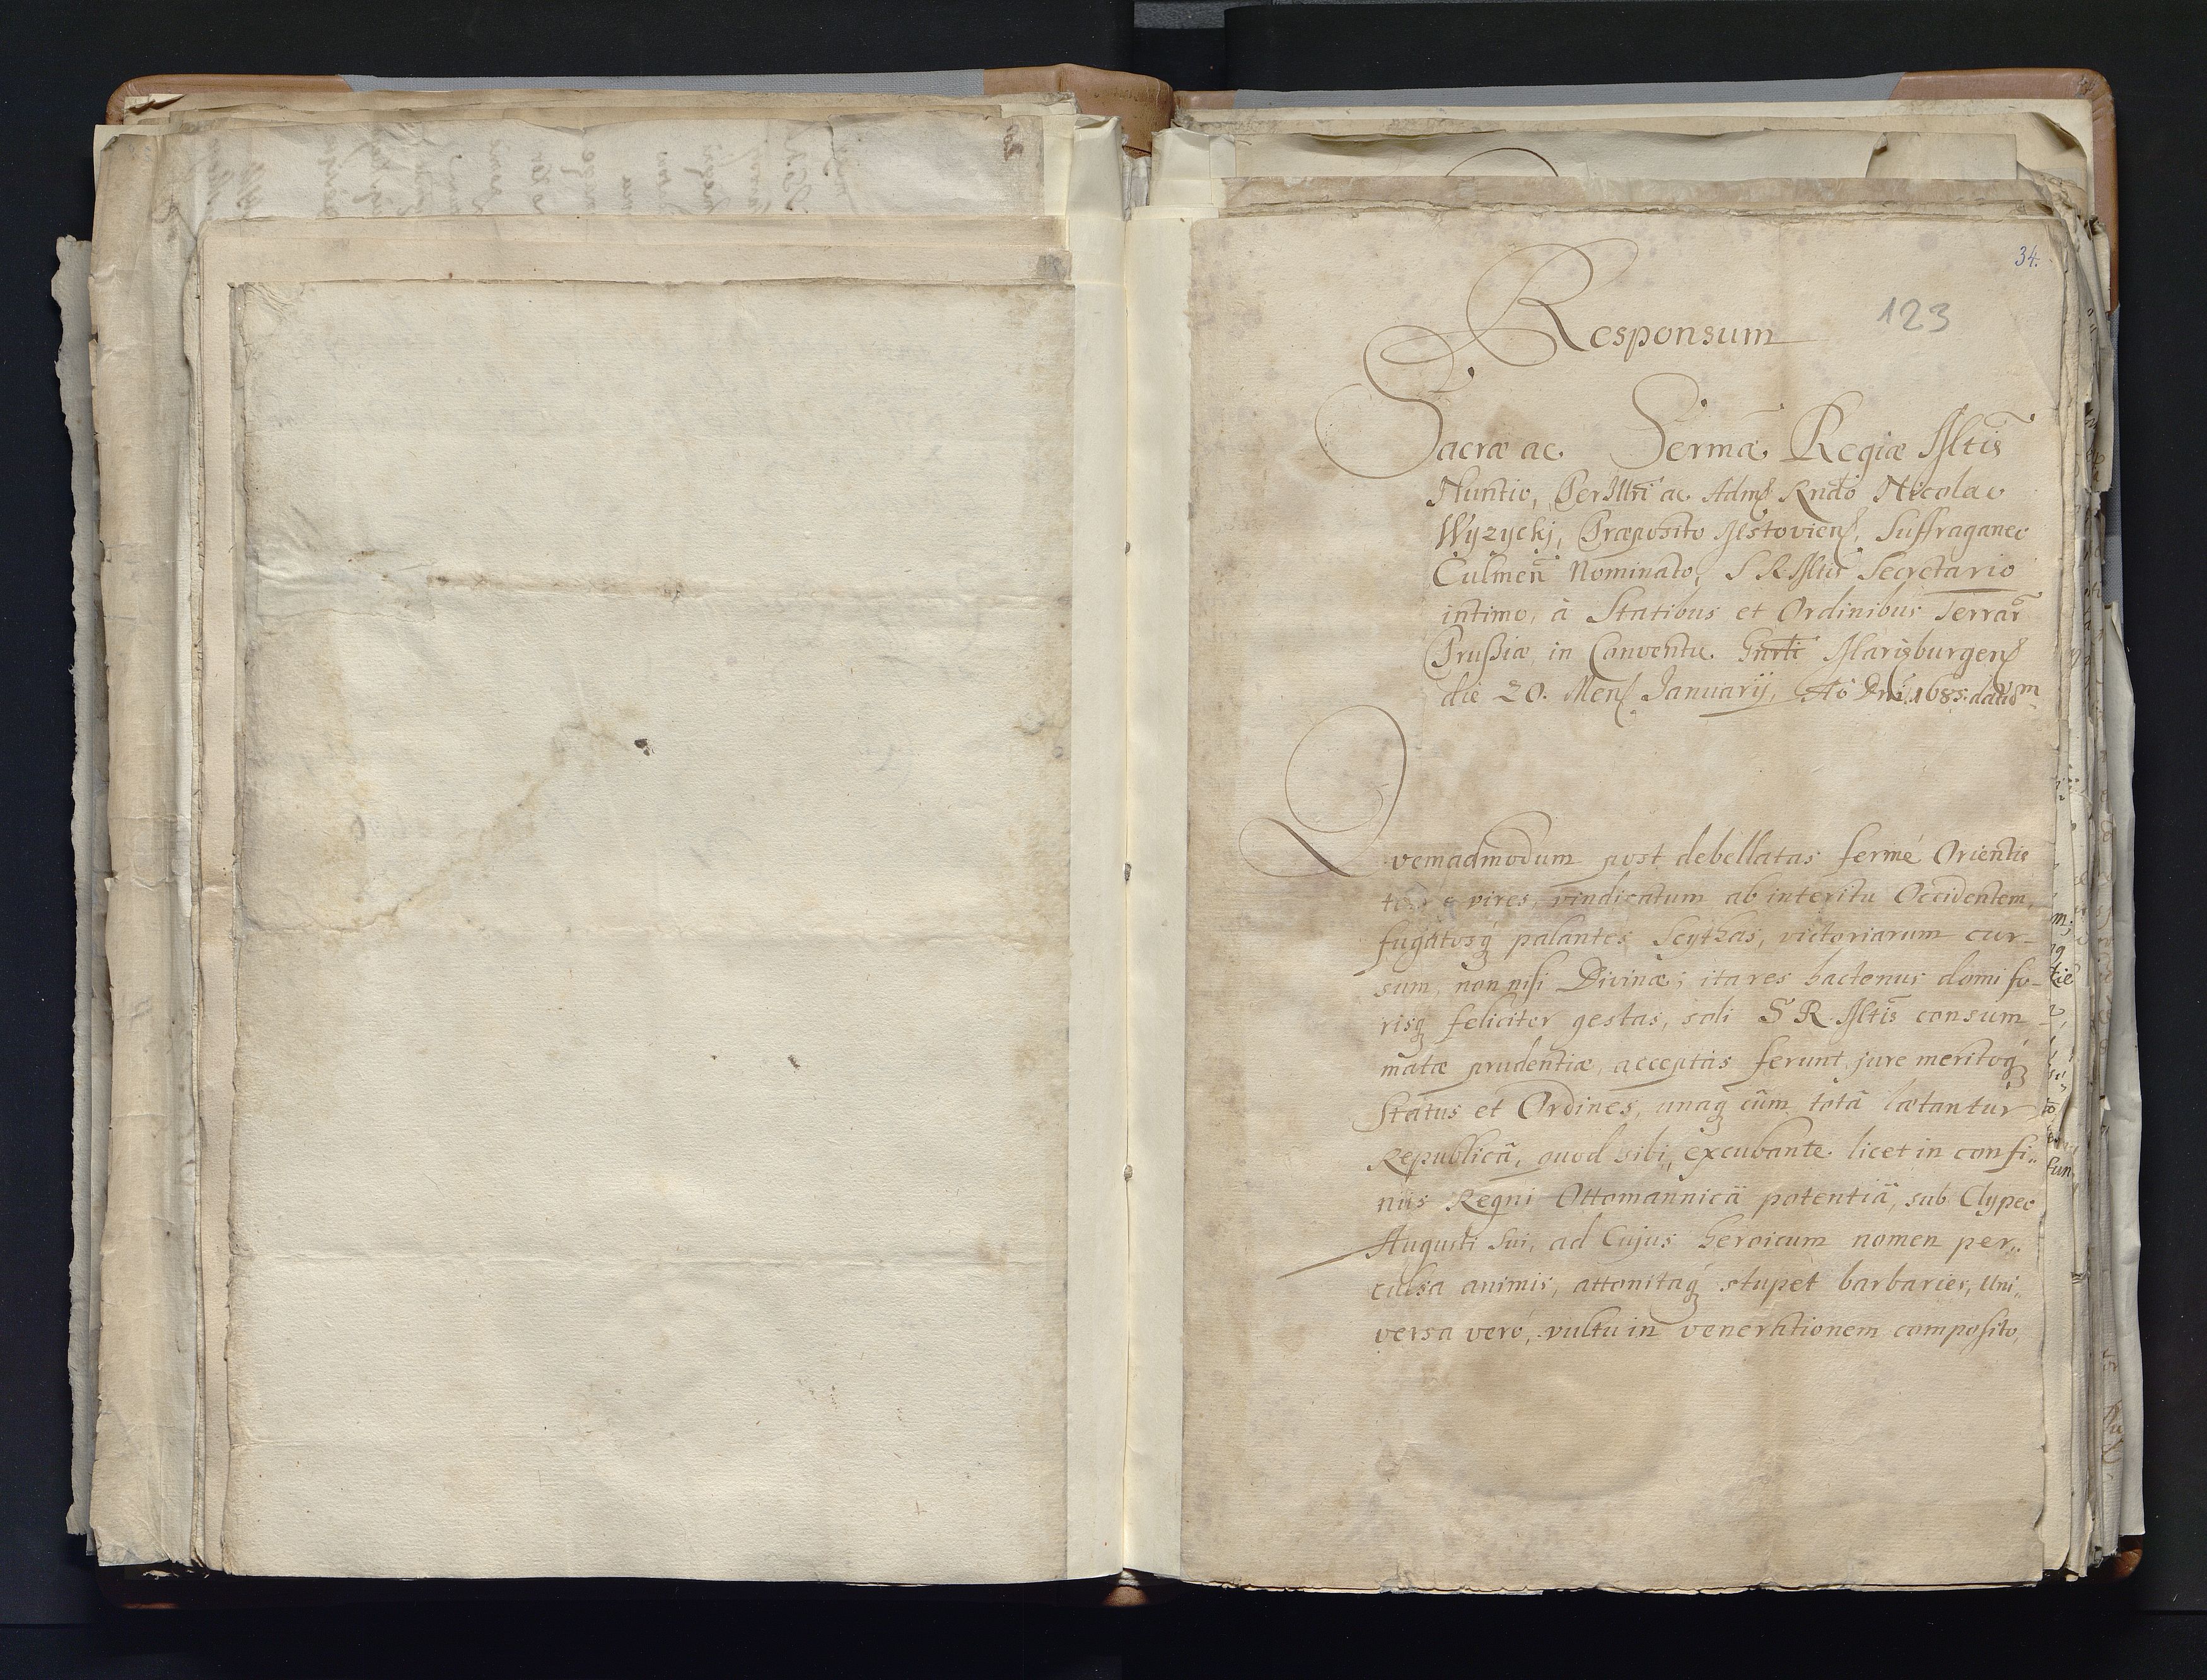 34.
123
Responsum
Sacræ ac Sermæ Regiæ Mltis
Nuntio, Per Illri ac Admɖ Rndo Nicolao
Wyzyckj, Præposito Mstoviens, Suffraganeo
Culmen Nominato, S R Mltis Secretario
intimo, à Statibus et Ordinibus Terrar
Prussiæ, in Conventu Gnrli Marisburgens
die 20. Mens Januarij, Ao Dni 1685. datum
Quemadmodum post debellatas fermè Orientis
vires, vindicatum ab interitu Occidentem,
fugatosq palantes Scythas, victoriarum cur-
sum, non nisi Divinæ; ita res hactenus domi fo-
risq feliciter gestas, soli S R Mltis consum
matæ prudentiæ, acceptas ferunt, jure meritoq
Status et Ordines, unaq cum totâ lætantur
Republicâ, quod sibi, excubante licet in confi-
niis Regni Ottomannicâ potentiâ, sub Clypeo
Augusti sui, ad Cujus heroicum nomen per-
culsa animis, attonitaq stupet barbaries, Uni-
versa verò, vultu in venerationem composito,